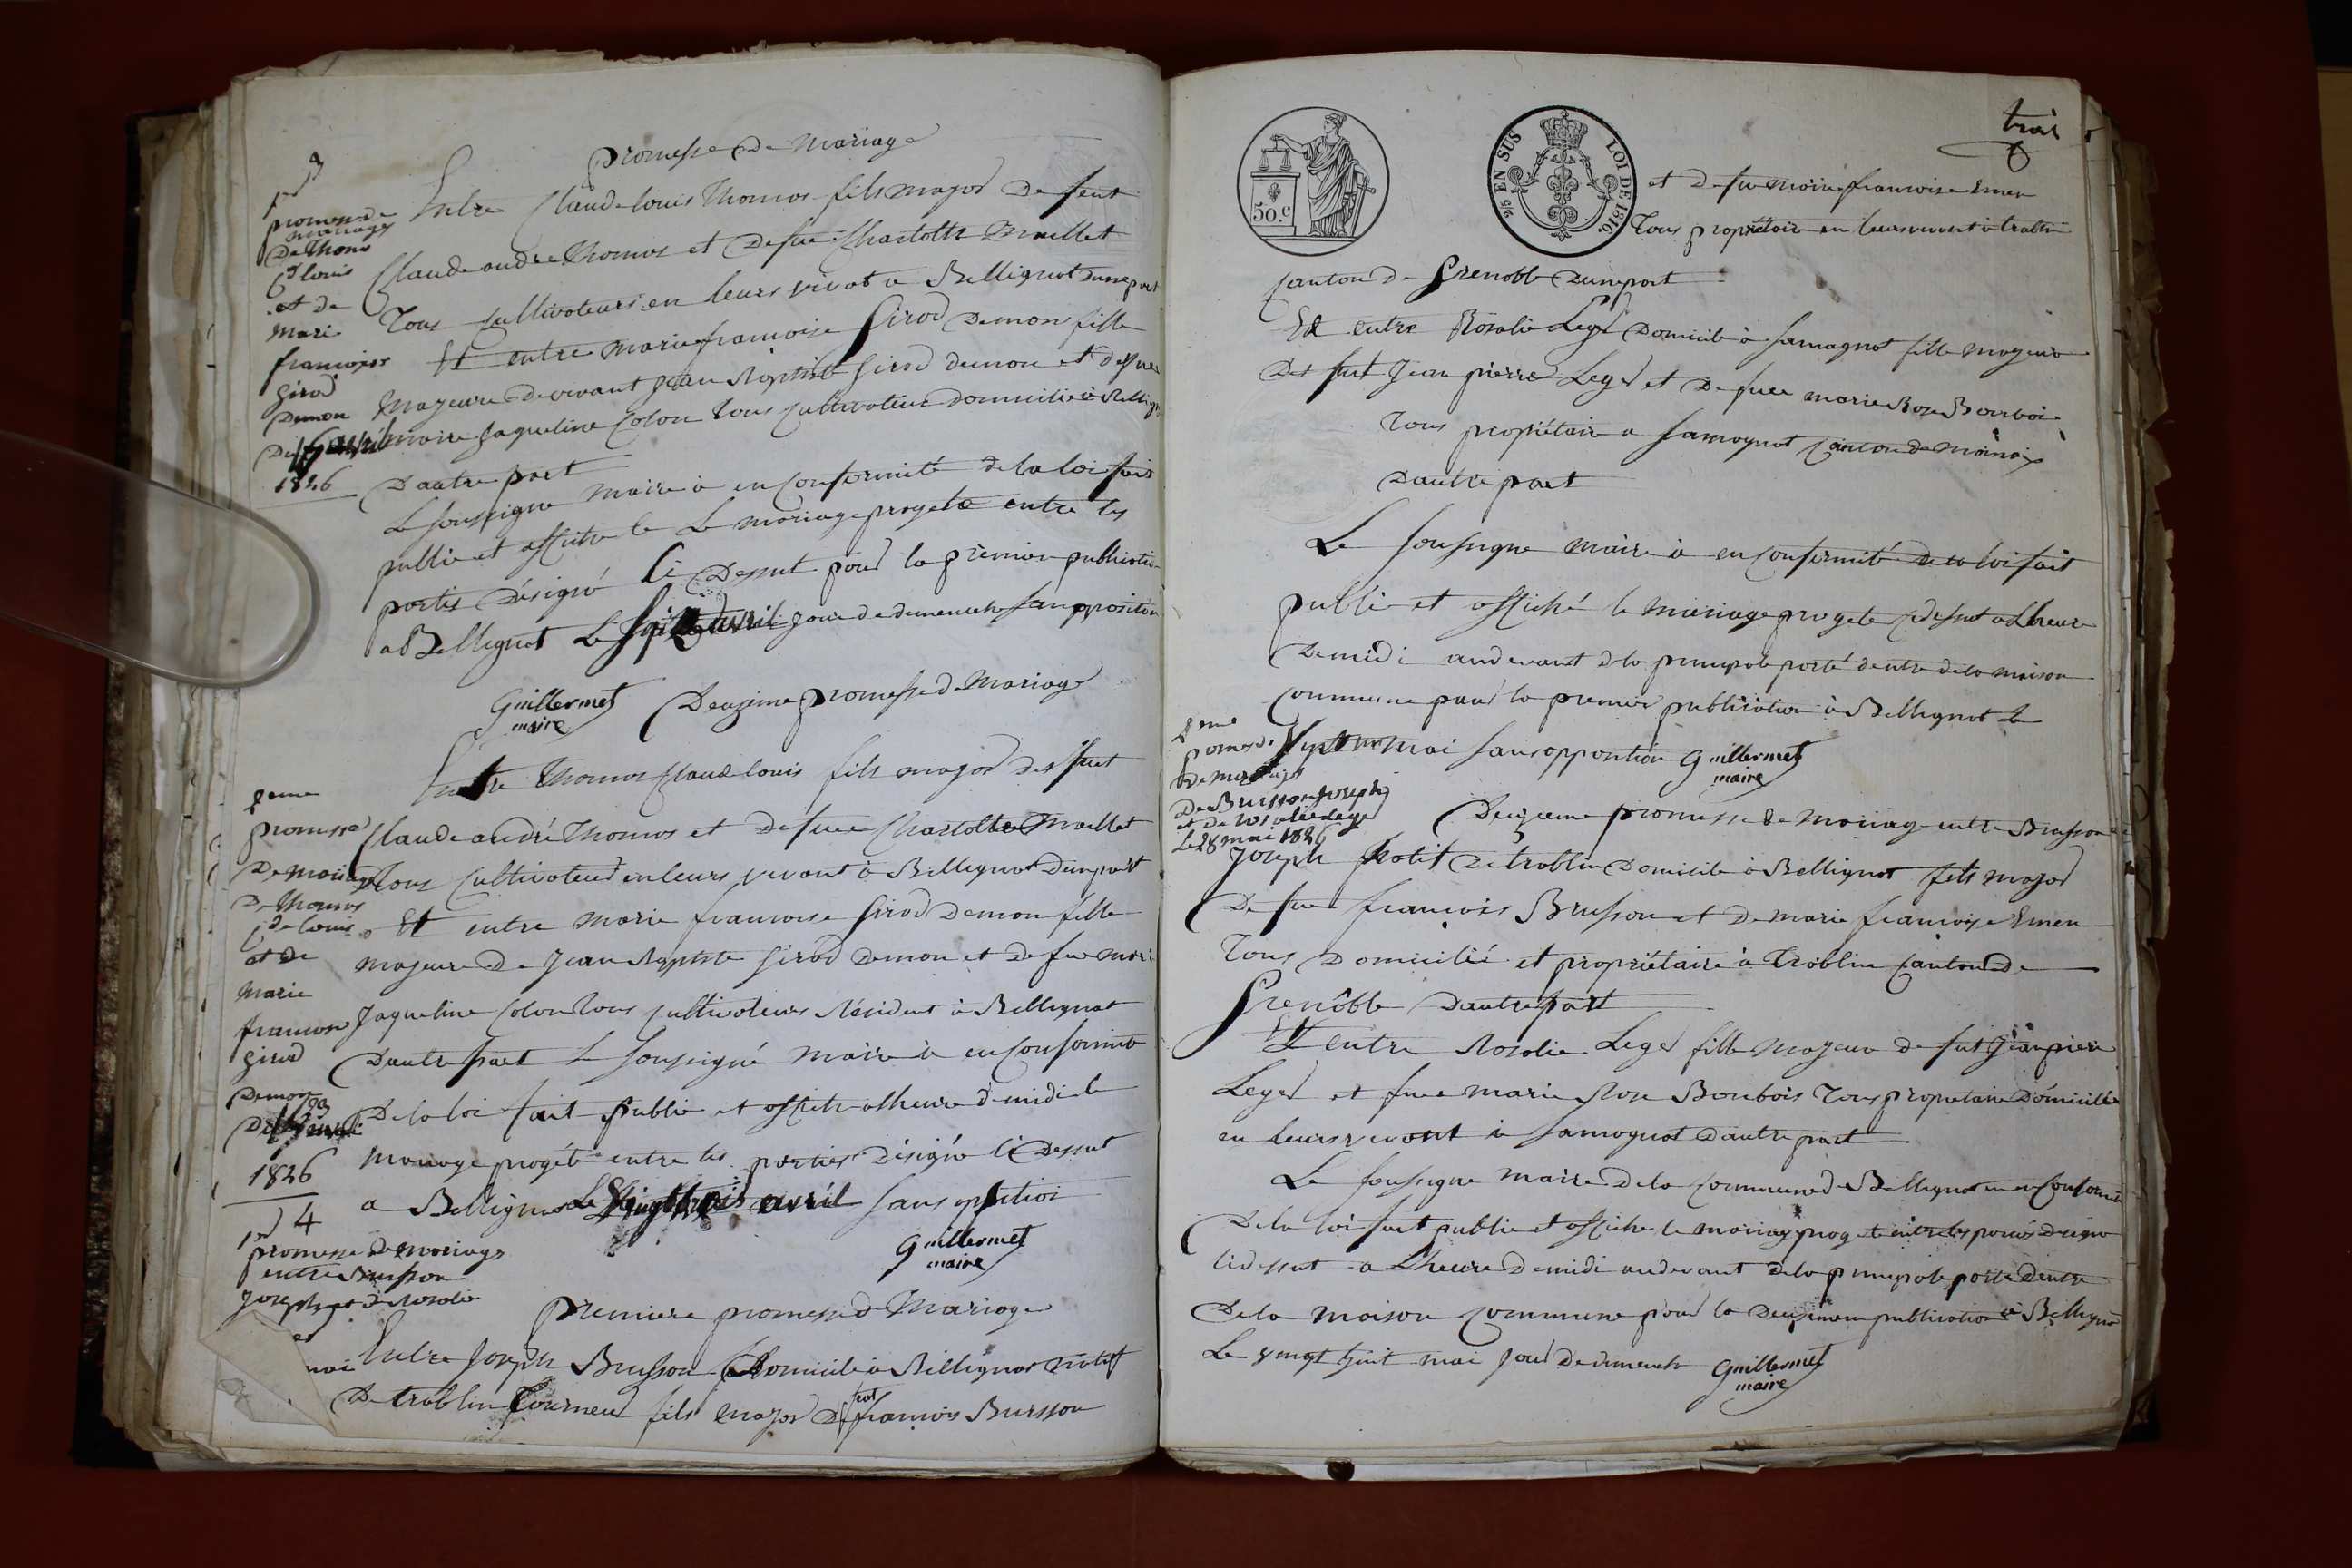 promesse de mariage
3
promesse de
mariage
De Thomas
Cde louis
et de
Marie
françoise
Girod
Demon
1826
Entre Claude louis Thomas fils major De feut
Claude andre Thomas et De fue Charlotte Maillet
Tous Cultivateurs en leurs vivat a Bellignat Dune part
Et entre marie francoise Girod Demon fille
Majeure de vivant Jean Baptiste Girod demon et de fue
marie Jaqueline Colon tous Cultivateur domicilie à Bellig
Dautre part
Le soussigne maire à en Conformité de la loi fait
publie et affiche le Le mariage progeté entre les
parties Désigné Ci Dessut pour la premier publication
a Bellignat Le avril jour de dimenche sans opposition
Guillermet
maire
Deuzieme promesse de Mariage
2eme
promesse
De mariage
De Thomas
Cde louis
et de
Marie
francoise
Girod
Demon
23
1826
Entre Thomas Claude louis fils major de feut
Claude andré Thomas et De fuee Charlotte Maillet
Tous Cultivateur en leurs vivant à Bellignat Dune part
Et entre Marie francoise Girod Demon fille
majeure De Jean Baptiste Girod Demon et De fue mari
Jaqueline Colon tous Cultivateurs Résident à Bellignat
Dautre part Le soussigné maire à en Conformité
De la loi fait publie et affiche a lheure de midi le
Mariage progété entre les parties Désigné Ci Dessut
a Bellignat Le Vingt trois avril sans opposition
Guillermet
maire
1er 4
promesse de mariage
entre Buisson
Joseph et de Rosalie
mai
premiere promesse de Mariage
Entre Joseph Buisson Domicile à Bellignat natif
De trablin Tourneur fils major de feu francois Buisson
trois
50.c
2/5 EN SUS
LOI DE 1816.
et de fue marie francoise Emen
Tous propriétaire en leurs vivant à trablin
Canton de Grenoble Dune part
Et entre Rosalie Leger Domicile à Samognat fille majeure
De feut Jean pierre Leger et De fuee marie Rose Bourbois
Tous propriétaire a Samognat Canton de
Dautre part
Le soussigne maire à en Conformité de la loi fait
publie et affiché le Mariage progeté Ci dessut a Lheure
De midi au devant de la principale porté dentre de la maison
Commune pour la premier publication à Bellignat Le
Sept mai sans opposition Guillermet
maire
2eme
promesse
De mariage
De Buisson Joseph
et de Rosalie Leger
Le 28 mai 1826
Deuzieme promesse de Mariage entre Buisson
Joseph natif De trablin Domicile à Bellignat fils major
De fue francois Buisson et De marie francoise Emen
Tous Domicilié et propriétaire à Trablin Canton de
Grenoble Dautre part
Et entre Rosalie Leger fille Majeure de feut Jean pierre
Leger et fuee Marie Rose Bourbois Tous propriétaire Domicilie
en leurs vivant à Samognat Dautre part
Le soussigne maire De la Commune de Bellignat en en Conformité
De la loi fait publie et affiche le mariage progeté entre les parties designe
Ci dessut a Lheure De midi au devant de la principale porte Dentre
De la Maison Commune pour la Deuzieme publication à Bellignat
Le vingt huit mai jour de dimenche Guillermet
maire